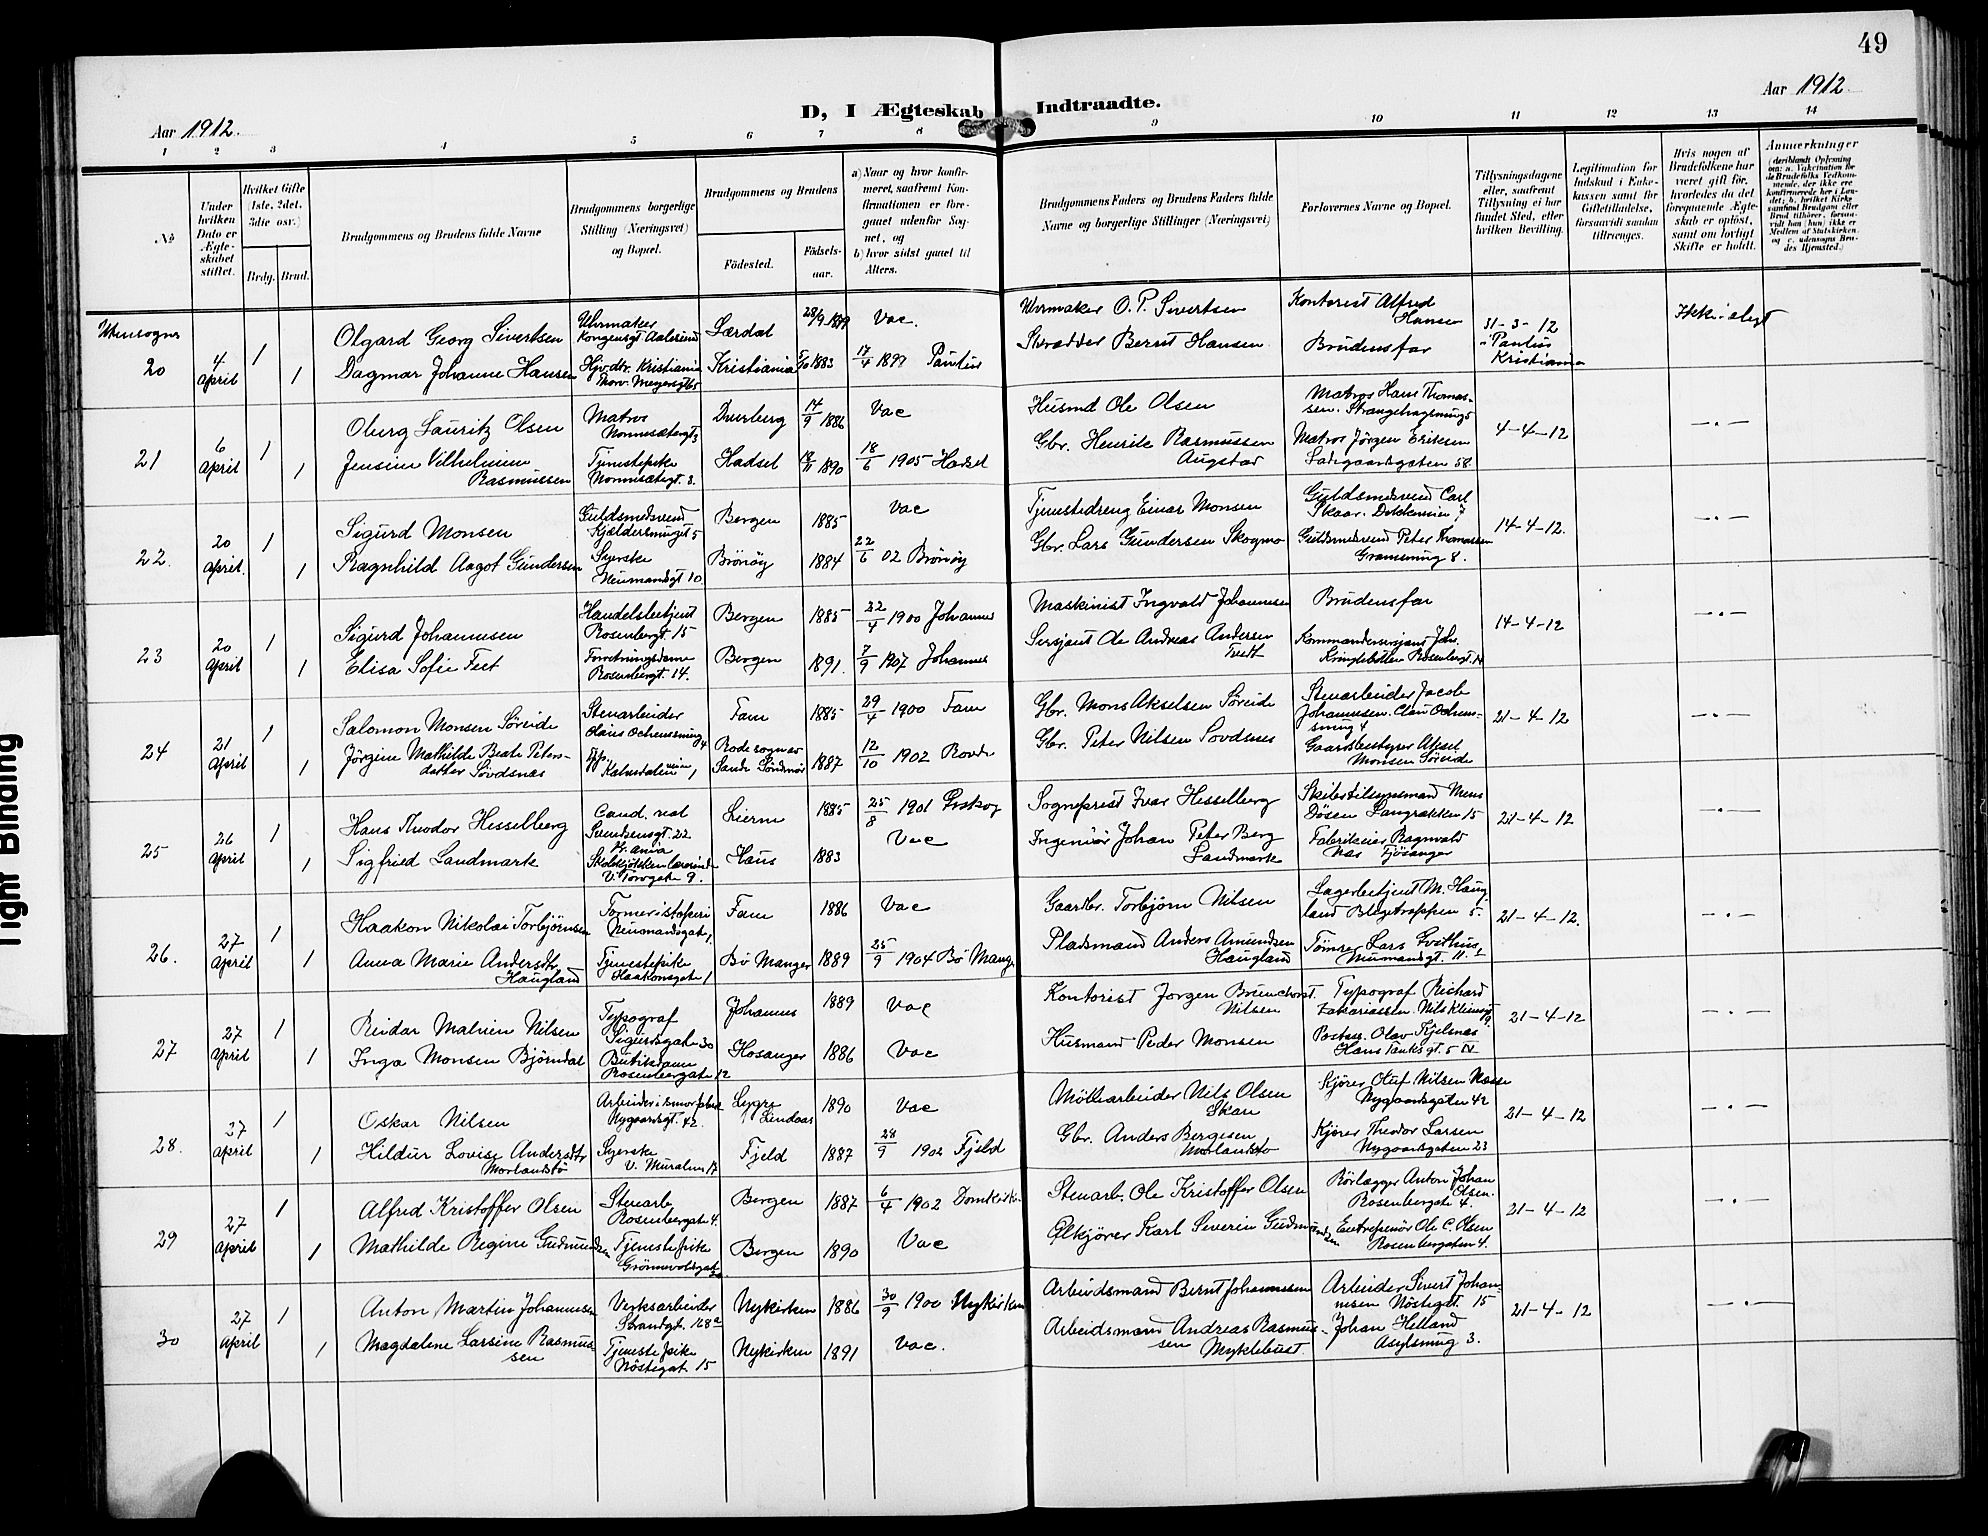 49
Aar 1912.
D, I Ægteskab Indtraadte.
Aar 1912.
1 2 3 4 5 6 7 8 9 10 11 12 13 14
No
Under hvilken Dato er Ægteskabet stiftet.
Hvilket Gifte (1ste, 2det, 3die osv.)
Brdg. Brud.
Brudgommens og Brudens fulde Navne
Brudgommens borgerlige Stilling (Næringsvei) og Bopæl.
Brudgommens og Brudens
Födested.
Födselsaar.
a) Naar og hvor konfirmeret, saafremt Konfirmationen er foregaaet udenfor Sognet, og
b) hvor sidst gaaet til Alters.
Brudgommens Faders og Brudens Faders fulde Navne og borgerlige Stillinger (Næringsvei)
Forlovernes Navne og Bopæl.
Tillysningsdagene eller, saafremt Tillysning ei har fundet Sted, efter hvilken Bevilling.
Legitimation for Indskud i Enkekassen samt for Giftetilladelse, forsaavidt saadan tiltrænges.
Hvis nogen af Brudefolkene har været gift før, hvorledes da det foregaaende Ægteskab er opløst, samt om lovligt Skifte er holdt.
Anmerkninger
(deriblandt Oplysning om: a. Vakcination for de Brudefolks Vedkommende, der ikke ere konfirmerede her i Landet; b. hvilket Kirkesamfund Brudgom eller Brud tilhører, forsaavidt han (hun) ikke er Medlem af Statskirken, og c. udensogns Brudes Hjemsted.)
Utensogns
20
4 April
1
1
Olgard Georg Sivertsen
Dagmar Johanne Hansen
Uhrmaker
Kongensgt. Aalesund
Hjv. dtr. Kristiania
Lærdal
Kristiania
28/9 1879
1883
Vac.
17/4 1898 Paulus
Uhrmaker O. P. Sivertsen
Skrædder Bernt Hansen
Kontorist Alfred Hansen
Brudensfar
31-3-12
i Paulus
Kristiania
Ikke i slegt
21
6 April
1
1
Oberg Lauritz Olsen
Jensine Vilhelmine Rasmussen
Matros
Nonnesætergt. 3
Tjenestepike
Nonnesætergt. 3.
Dverberg
Hadsel
14/9 1886
1890
Vac
18/6 1905 Hadsel
Husmd Ole Olsen
Gbr. Henrik Rasmussen Augstad
Matros Hans Thomassen. Strangehagsmug 5
Matros Jörgen Eriksen
Ladegaardsgaten 58.
4-4-12
- " -
22.
20 April.
1
1
Sigurd Monsen
Ragnhild Aagot Gundersen
Guldsmedsvend
Kjeldersmuget 5
Syerske
Neumandsgt 10.
Bergen
Brönöy
1885
1884
Vac
22/6 02 Brönöy
Tjenestedreng Einar Monsen
Gbr. Lars Gundersen Skogmo
Guldsmedsvend Carl Skaar.
Guldsmedsvend Peter Thomassen
8.
14-4-12.
- " -
23
20 April
1
1
Sigurd Johannesen
Elisa Sofie Tvet
Handelsbetjent
Rosenbergt. 15
Forretningsdame
Rosenbergt. 14.
Bergen
Bergen
1885
1891.
22/4 1900 Johannes
7/9 1907 Johannes
Maskinist Ingvald Johannesen
Sersjant Ole Andreas Andersen Tvedt
Brudensfar
Kommandersersjant Joh. Kringlebotten Rosenbergt. 14
14-4-12
- " -
24
21 April
1
1
Salomon Monsen Söreide
Jörgine Mathilde Beate Petersdatter Sövdsnæs
Stenarbeider
Claus Ockensmug 4
Tjp.
Kalvedalsveien 1
Fane
Rode sogn
Sande Söndmör
1885
1887
29/4 1900 Fane
12/10 1902 Rovde
Gbr. Mons Akselsen Söreide
Gbr. Peter Nilsen Sovdsnes
Stenarbeider Jacob Johannesen. Claus Ockensmug 4
Gaardsbestyrer Aksel Monsen Söreide
21-4-12
- " -
25
26 April
1
1
Hans Theodor Hesselberg
Sigfried Landmark
Cand. real
Svendsensgt. 22
Kr. ania
V. Torvgate 9.
Lierne
Haus
1885
1883
25/8 1901
Vac
Sogneprest Ivar Hesselberg
Ingeniør Johan Peter Berg Landmark
Skibstilsynsmand Mens Dösen 15
Fabrikeier Ragnvald Næs Fjösanger
21-4-12
- " -
26.
27 April
1
1
Haakon Nikolai Torbjörnsen
Anna Marie Andersdtr. Haugland
Formeristoperi
Neumandsgate 1.
Tjenestepike
Haakonsgate 1
Fane
Bö Manger
1886
1889
Vac
25/9 1904 Bö Mang.
Gaardbr. Torbjörn Nilsen
Pladsmand Anders Amundsen Haugland
Lagerbetjent M. Haugland Blegetrappen 5.
Tömrer Lars
Neumandsgt. 11.
21-4-12.
- " -
27
27 April
1
1
Reidar Malvin Nilsen
Inga Monsen Bjørndal
Typograf
Sigurdsgate 30
Butikdame
Rosenbergate 12
Johannes
Hosanger
1889
1886
Vac
Vac
Kontorist Jorgen Brunchorst Nilsen
Husmand Peder Monsen
Typograf Richard Zakariassen.
Postass. Olav Kjelsnæs
Hans Tanksgt. 5 IV
21-4-12
- " -
28.
27 April
1
1
Oskar Nilsen
Hildur Lovise Andersdtr. Morlandstø
Nygaardsgt. 42.
Syerske
V. Muralm. 17
Lygre Lindaas
Fjeld
1890
1887
Vac
28/9 1902 Fjeld
Möllearbeider Nils Olsen Skau
Gbr. Anders Bergesen Morlandstø
Kjörer Oluf Nilsen Næsse
Nygaardsgaten 42
Kjörer Theodor Larsen
Nygaardsgaten 23
21-4-12
- " -
29
27 April
1
1
Alfred Kristoffer Olsen
Mathilde Regine Gudmundsen
Stenarb.
Rosenbergate 4.
Tjenestepike
Grönnevoldsgat.
Bergen
Bergen
1887
1890
6/4 1902 Domkirk
Vac
Stenarb. Ole Kristoffer Olsen
Ölkjörer Karl Severin Gudmundsen
Rörlægger Anton Johan Olsen.
Rosenbergate 4.
Entrepenör Ole C. Olsen
Rosenbergaten 4.
21-4-12
- " -
30
27 April
1
1
Anton Martin Johannesen
Magdalene Larsine Rasmussen
Verksarbeider
Strandgt. 168a
Tjenestepike
Nöstegat. 15
Nykirken
Nykirken
1886
1891
30/9 1900 Nykirken
Vac.
Arbeidsmand Bernt Johannesen
Arbeidsmand Andreas Rasmussen Myklebust.
Arbeider Sivert Johannesen Nöstegt. 15
Johan Helland
Asylsmug 3.
21-4-12
- " -
Tight Binding